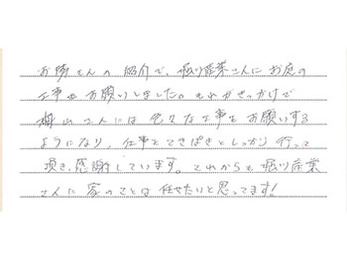 お隣さんの紹介で、堀川産業さんにお庭の
工事をお願いしました。それがきっかけで
梅山さんには色々な工事をお願いする
ようになり、仕事もてきぱきとしっかり行って
頂き、感謝しています。これからも堀川産業
さんに家のことは任せたいと思ってます!